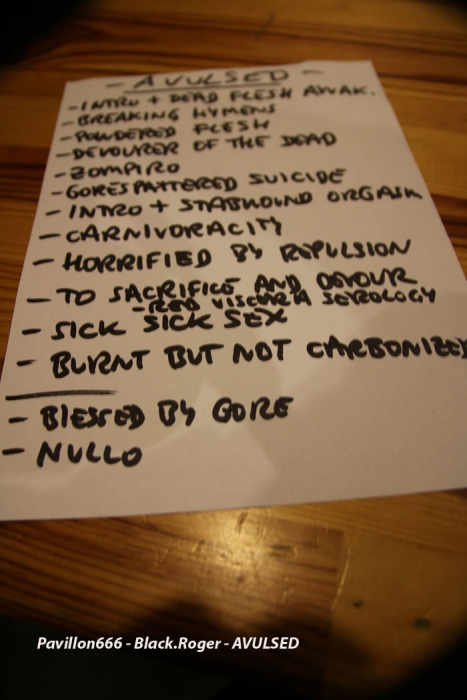 - AVULSED -
- INTRO + DEAD FLESH AWAK.
- BREAKING HYMENS
- POWDERED FLESH
- DEVOURER OF THE DEAD
- ZOMPIRO
- GORESPATTERED SUICIDE
- INTRO + STABWOUND ORGASM
- CARNIVORACITY
- HORRIFIED BY REPULSION
- TO SACRIFICE AND DEVOUR
- RED VISCERA SEROLOGY
- SICK SICK SEX
- BURNT BUT NOT CARBONIZED
- BLESSED BY GORE
- NULLO
Pavillon666 - Black.Roger - AVULSED